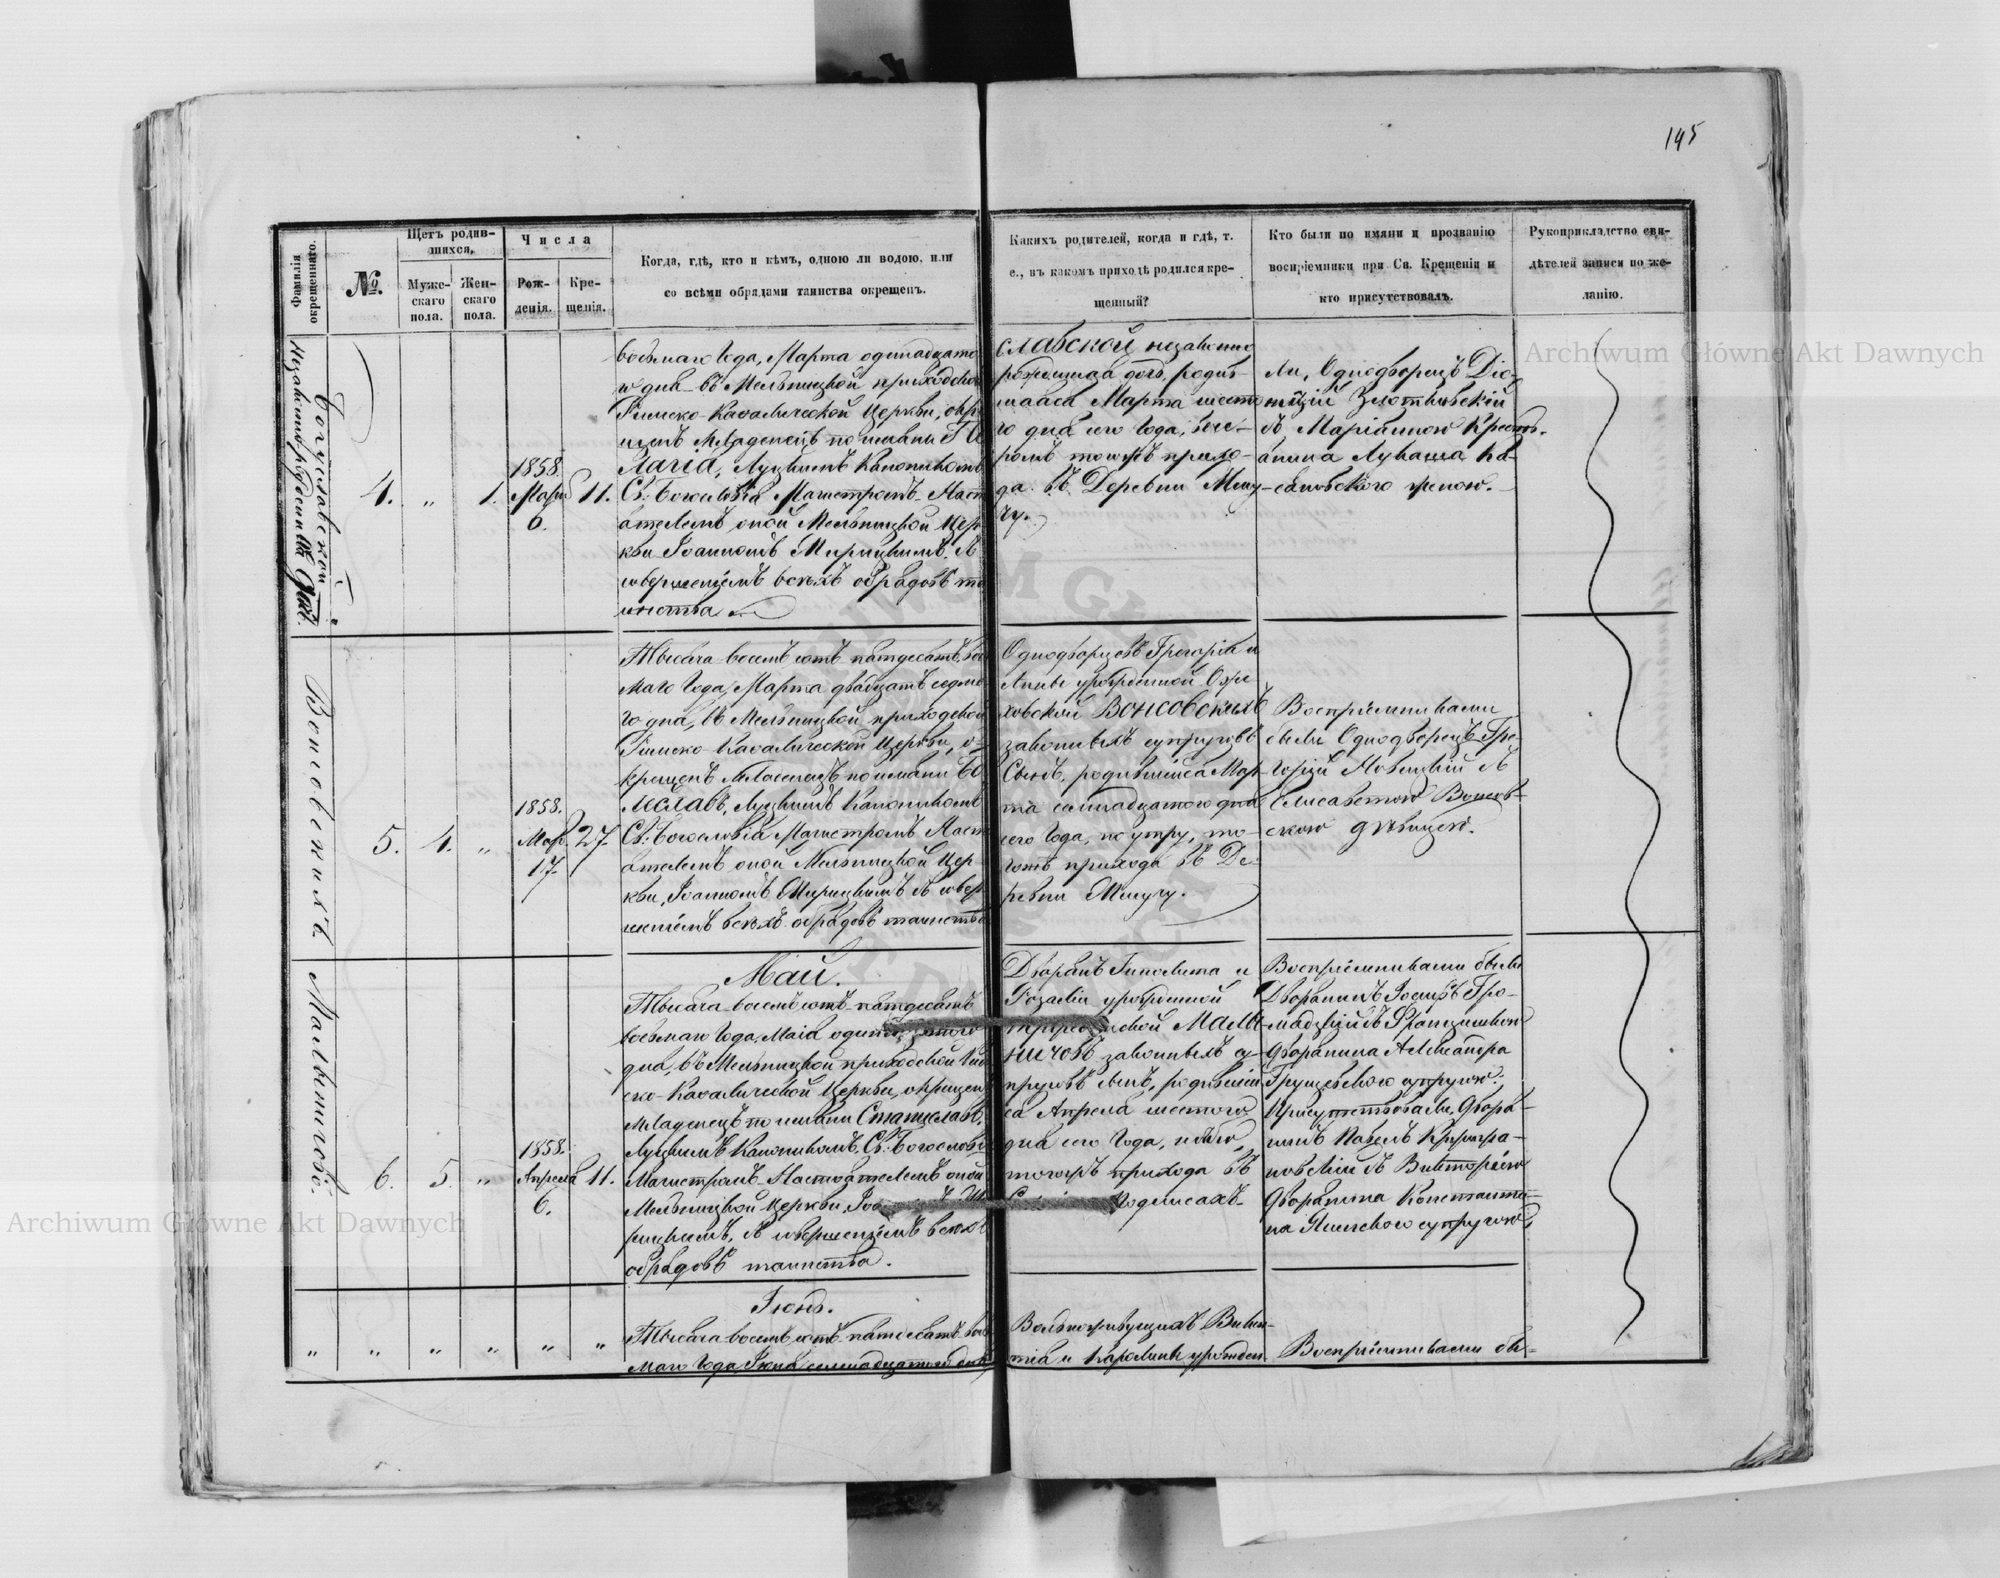 195
Фамилія окрещеннаго.
№.
Щетъ родив-
шихся.
Муже-
скаго
пола.
Жен-
скаго
пола.
Числа
Рож-
денія.
Кре-
щенія.
Когда, гдѣ, кто и кѣмъ, одною ли водою, или
со всѣми обрядами таинства окрещенъ.
Какихъ родителей, когда и гдѣ, т.
е., въ какомъ приходѣ родился кре-
щенный?
Кто были по имяни и прозванію
воспріемники при Св. Крещеніи и
кто присутствовалъ.
Рукоприкладство сви-
дѣтелей записи по же-
ланію.
4.
"
1.
1858.
Март
6.
11.
восьмаго Года, Марта одинадцата-
го дня въ Мельницкой приходской
Римско-Каѳолической Церкви, окре
щенъ Младенецъ по имени
Луцкимъ Каноникомъ
Св: Богословія Магистромъ Насто
ятелемъ оной Мельницкой Цер-
кви Іоанномъ съ
совершеніемъ всѣхъ обрядовъ та
инства
славской незаконно
рожденная дочь, родив-
шаяся Марта шесто
го дня сего Года, вече-
ромъ тогожъ прихо-
да въ Деревни
ли, Однодворецъ
съ Маріанною Крестья-
нина Лукаша Ка-
женою.
Вонсовскихъ
5.
4.
"
1858.
Мар.
17.
27.
Тысяча восемъ сотъ пятдесятъ вось
маго Года, Марта двадцать седма
го дня, въ Мельницкой приходской
Римско-Каѳолической Церкви, о-
крещенъ Младенецъ по имени Бо
леславъ, Луцкимъ Каноникомъ
Св: Богословія Магистромъ Насто
ятелемъ оной Мельницкой Цер-
кви, Іоанномъ съ совер
шеніемъ всѣхъ обрядовъ таинства
Однодворцовъ Григорія и
Анны урожденной
Вонсовскихъ
законныхъ супруговъ
Сынъ, родившійся Мар-
та семнадцатого дня
сего Года, по утру, то-
гожъ прихода въ Де-
ревни
Воспріемниками
были Однодворецъ Гре-
горій Новицкій съ
Елисаветою Вонсов-
скою дѣвицею.
6.
5.
"
1858.
Апреля
6.
11.
Май.
Тысяча восемъ сотъ пятдесятъ
восьмаго Года, Маія одинадцатого
дня, въ Мельницкой приходской Рим
ско-Каѳолической Церкви, окрещен
Младенецъ по имени Станиславъ,
Луцкимъ Каноникомъ Св: Богословія
Магистромъ Настоятелемъ оной
Мельницкой Церкви,
съ совершеніемъ всѣхъ
обрядовъ таинства.
Дворянъ Гиполита и
Розаліи урожденной
законныхъ су-
пруговъ сынъ, родившій
ся Апреля шестого
дня сего Года,
тогожъ прихода въ
Воспріемниками были
Дворянинъ Іосифъ Гро-
мадзкій съ Францишкою
Дворянина Александра
супругою:
Присутствовали, Дворя-
нинъ Павелъ
съ Викторіею
Дворянина Константи-
на супругою
"
"
"
"
"
"
Іюнь.
Тысяча восемъ сотъ пятдесятъ вось
маго Года, Іюня семнадцатого дня
Вольноживущихъ Викен-
тія и Каролины урожден
Воспріемниками бы-
Archiwum Główne Akt Dawnych
Archiwum Główne Akt Dawnych